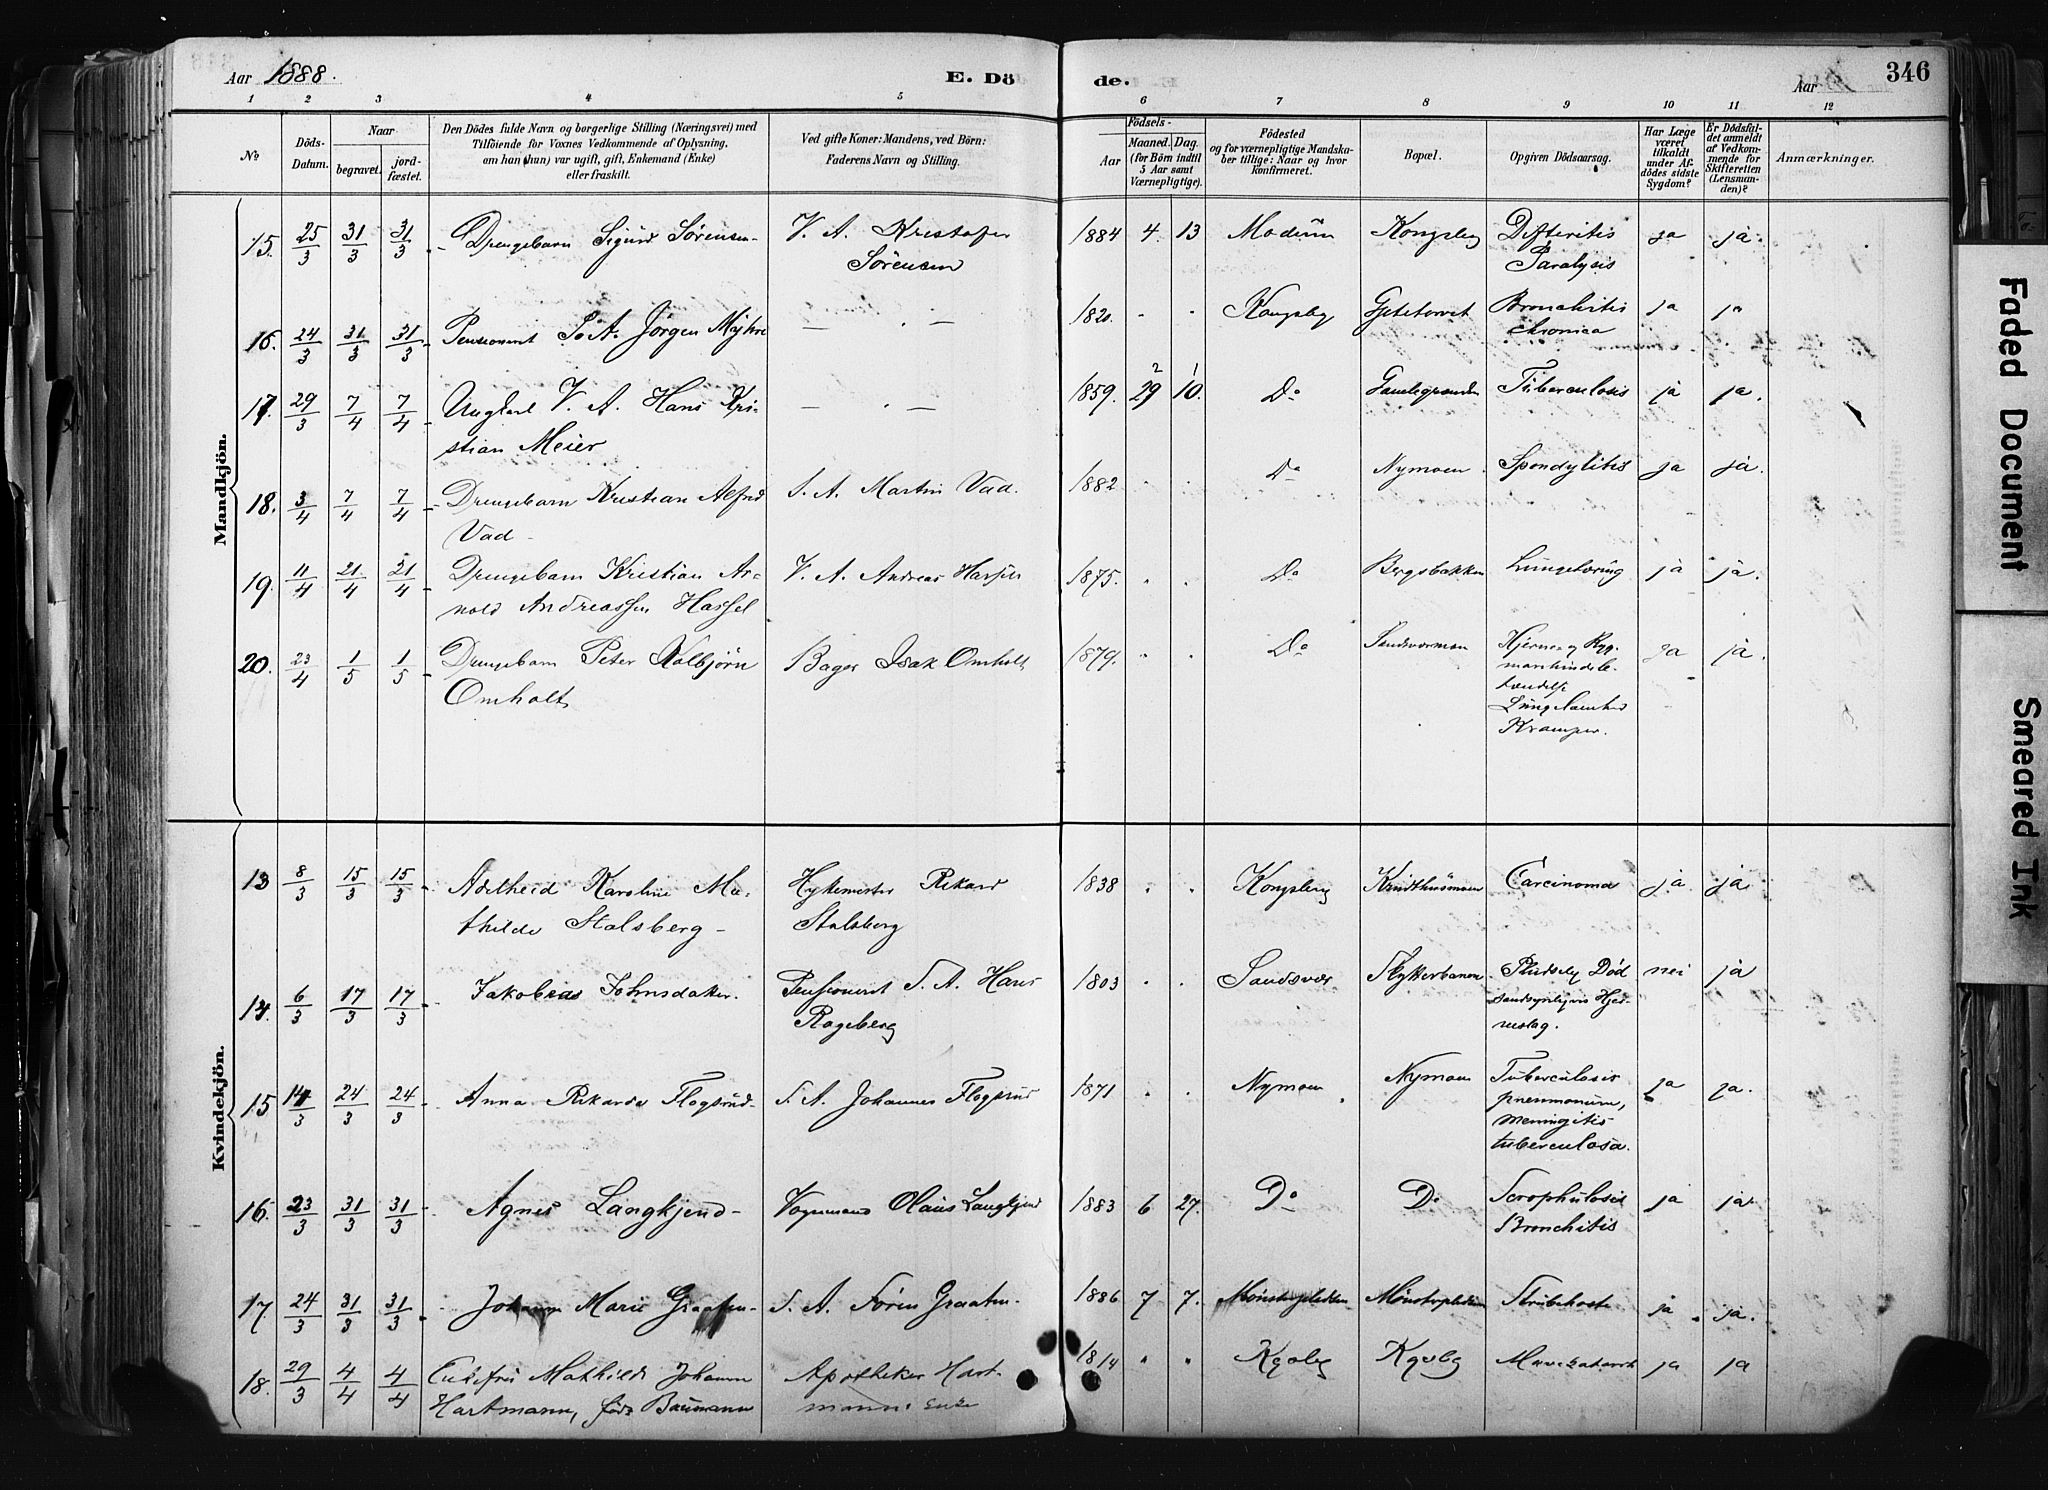 Aar 1888.
E. Dö
de.
Aar
346
1 2 3 4 5 6 7 8 9 10 11 12
No
Döds-
Datum.
Naar
begravet.
jord-
fæstet.
Den Dödes fulde Navn og borgerlige Stilling (Næringsvei) med
Tilföiende for Voxnes Vedkommende af Oplysning,
om han (hun) var ugift, gift, Enkemand (Enke)
eller fraskilt.
Ved gifte Koner: Mandens, ved Börn:
Faderens Navn og Stilling.
Födsels-
Aar
Maaned. Dag.
(for Börn indtil
5 Aar samt
Værnepligtige).
Födested
og for værnepligtige Mandska-
ber tillige: Naar og hvor
konfirmeret.
Bopæl.
Opgiven Dödsaarsag.
Har Læge
været
tilkaldt
under Af-
dödes sidste
Sygdom?
Er Dödsfal-
det anmeldt
af Vedkom-
mende for
Skifteretten
(Lensman-
den)?
Anmærkninger.
Mandkjön.
15. 25/3 31/3 31/3 Drengebarn Sigurd Sörensen V. A. Kristofer 1884 4 13 Modum Kongsberg Difteritis ja ja.
Sörensen Paralysis
16. 24/3 31/3 31/3 Pensionert S. A. Jörgen Myhre — " — 182 " " Kongsbg Gytetorvet Bronchitis ja ja
chronica
17. 29/3 7/4 7/4 Ungkarl V. A. Hans Kri- — " — 1859. 2 29 1 10. Do Tuberculosis ja ja.
stian Meier
18. 3/4 7/4 7/4 Drengebarn Kristian Alfred S. A. Martin Vad. 1882 " " Do Nymoen Spondylitis ja ja.
Vad
19. 11/4 21/4 21/4 Drengebarn Kristian Ar- V. A. Andreas Hassel 1875. " " Do Bergsbakken Lungetæring ja ja.
nold Andreassen Hassel
20. 23/4 1/5 1/5 Drengebarn Peter Kolbjörn Bager Isak Omholt 1879. " " Do Sandsværmoen Hjerne og Ryg- ja ja.
Omholt marvhindebe-
tændelse
Lungelamhed
Kramper.
Kvindekjön.
13 8/3 15/3 15/3 Adelheid Karoline Ma- Rikard 1838 " " Kongsberg Carcinoma ja ja.
thilde Stalsberg Stalsberg
14. 6/3 17/3 17/3 Jakobea Johnsdatter. Pensionert S. A. Hans 1803 " " Sandsvær Pludselig Död nei ja
Rogeberg sandsynligvis Hjer-
neslag.
15 14/3 24/3 24/3 Anna Rikarda Flogsrud S. A. Johannes Flogsrud 1871 " " Nymoen Nymoen Tuberculosis ja ja.
pneumonum,
meningitis
tuberculosa.
16. 23/3 31/3 31/3 Agnes Langkjend Vognmand Olaus Langkjend 1883 6 27. Do Do Scrophulosis ja ja.
Bronchitis
17. 24/3 31/3 31/3 Johanne Marie Graaten S. A. Sören Graaten 1886 7 7. Mönsterpladsen Mönsterpladsen Strubehoste ja ja.
18. 29/3 4/4 4/4 Mathilde Johanne Apotheker Hart- 1814 " " Kgsbg Kgsbg Mavekatarrh ja ja
Hartmann, född Baumann manns Enke
Faded Document
Smeared Ink